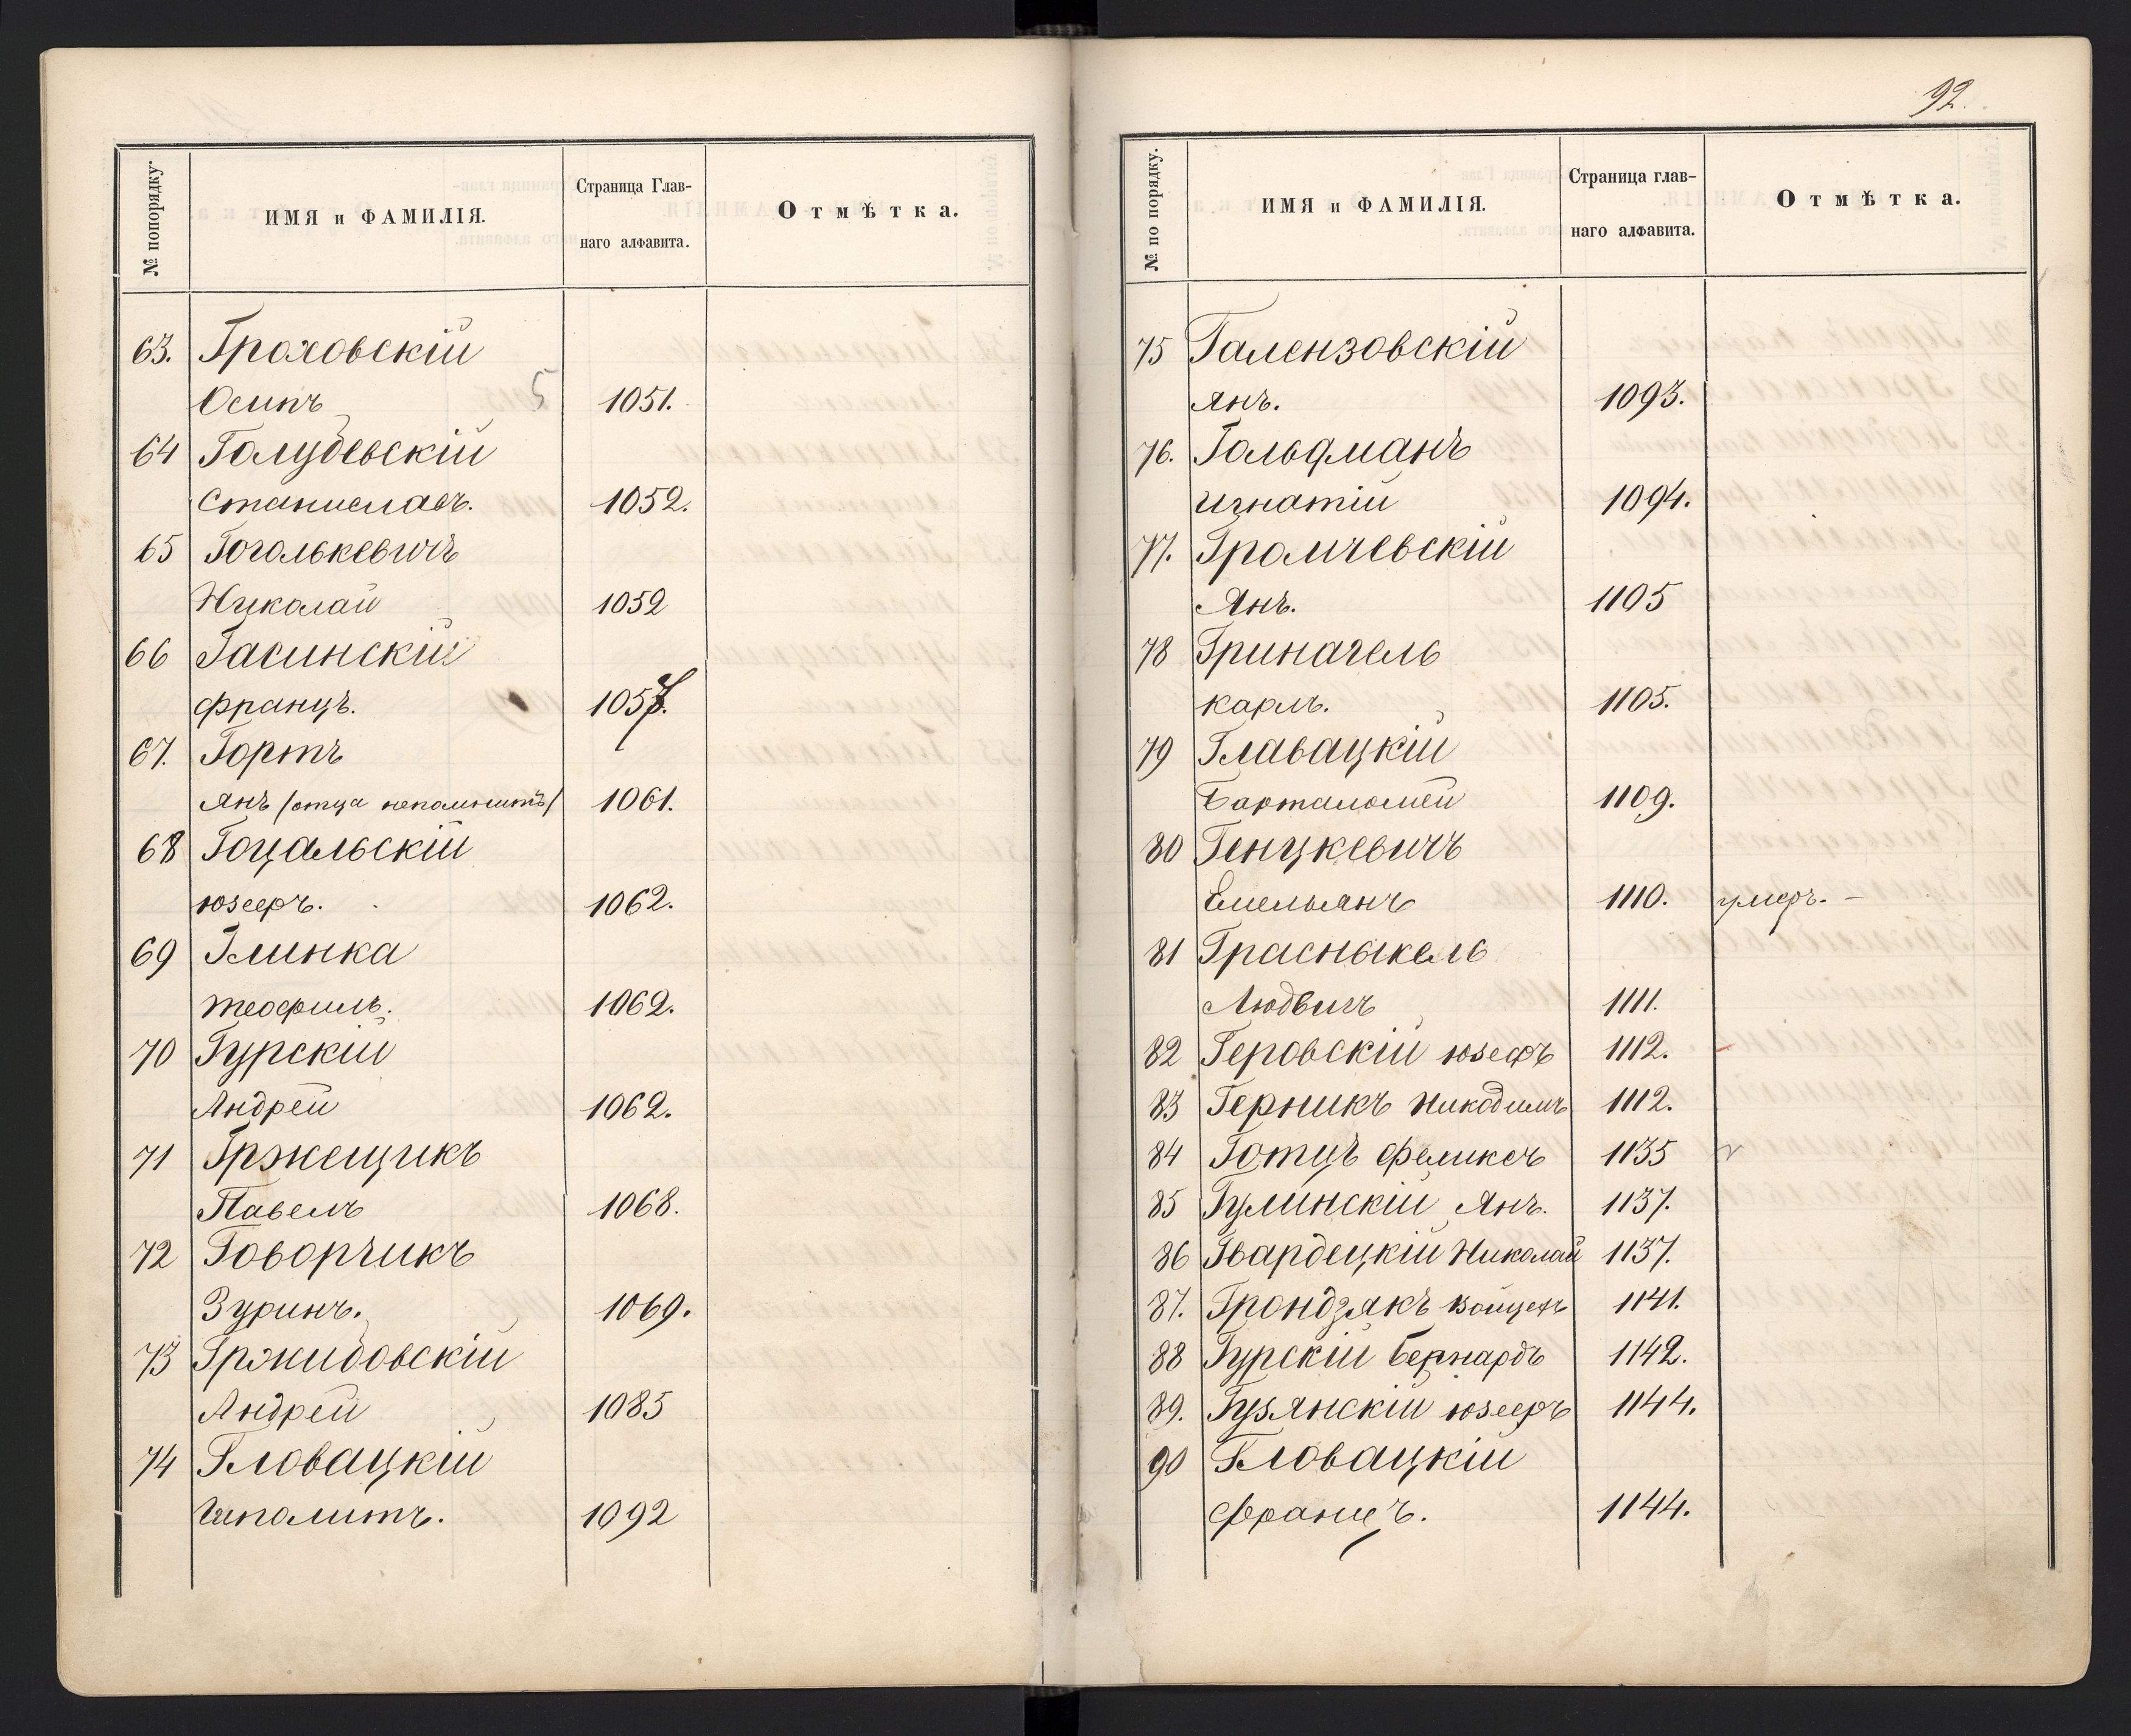 92.
№ попорядку.
ИМЯ и ФАМИЛІЯ.
Страница Глав-
наго алфавита.
Отмѣтка.
63. Гроховскій
Осипъ 5 1051.
64 Голубевскій
Станиславъ. 1052.
65 Гогалькевичъ
Николай 1052
66 Гасинскій
Францъ. 1057.
67. Гортъ
Янъ /отца непомнитъ/ 1061.
68 Гоцальскій
Юзефъ. 1062.
69 Глинка
Теофиль. 1062.
70 Гурскій
Андрей 1062.
71 Гржещикъ
Павелъ 1068.
72 Говорчикъ
Зуринъ. 1069.
73 Гржибовскій
Андрей 1085
74 Гловацкій
Ипполитъ. 1092
№ по порядку.
ИМЯ и ФАМИЛІЯ.
Страница глав-
наго алфавита.
Отмѣтка.
75 Галензовскій
Янъ. 1093.
76. Гольфманъ
Игнатій 1094.
77. Громчевскій
Янъ. 1105
78 Гринагель
Карлъ. 1105.
79 Главацкій
Бартоломей 1109.
80 Генцкевичъ
Емельянъ 1110. умеръ. –
81 Грасныкель
Людвигъ 1111.
82 Геровскій Юзефъ 1112.
83 Герникъ Никодимъ 1112.
84 Готцъ Феликсъ 1135
85 Гулинскій Янъ. 1137.
86 Гвардецкій Николай 1137.
87. Грондзякъ Войцехъ 1141.
88 Гурскій Бернардъ 1142.
89. Гузянскій Юзефъ 1144.
90 Гловацкій
Францъ. 1144.